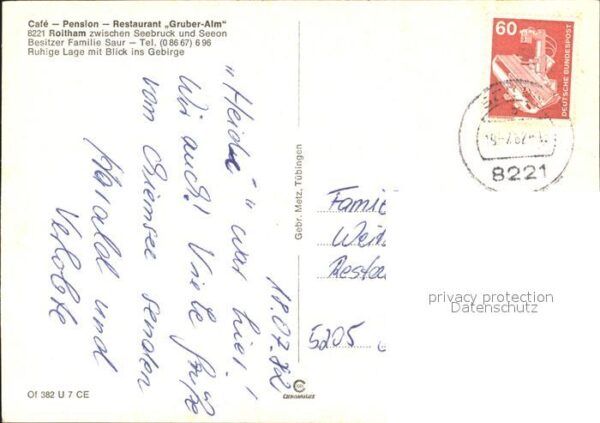 Café — Pension — Restaurant „Gruber-Alm"
8221 Roitham zwischen Seebruck und Seeon
Besitzer Familie Saur — Tel. (0 86 67) 6 96
Ruhige Lage mit Blick ins Gebirge
18.07.82
„Heidi" war hier!
Wir auch! Viele Grüße
vom Chiemsee senden
Harald und
Verlobte
Gebr. Metz, Tübingen
60
DEUTSCHE BUNDESPOST
8221
Famil
Restau
5205
privacy protection
Datenschutz
Of 382 U 7 CE